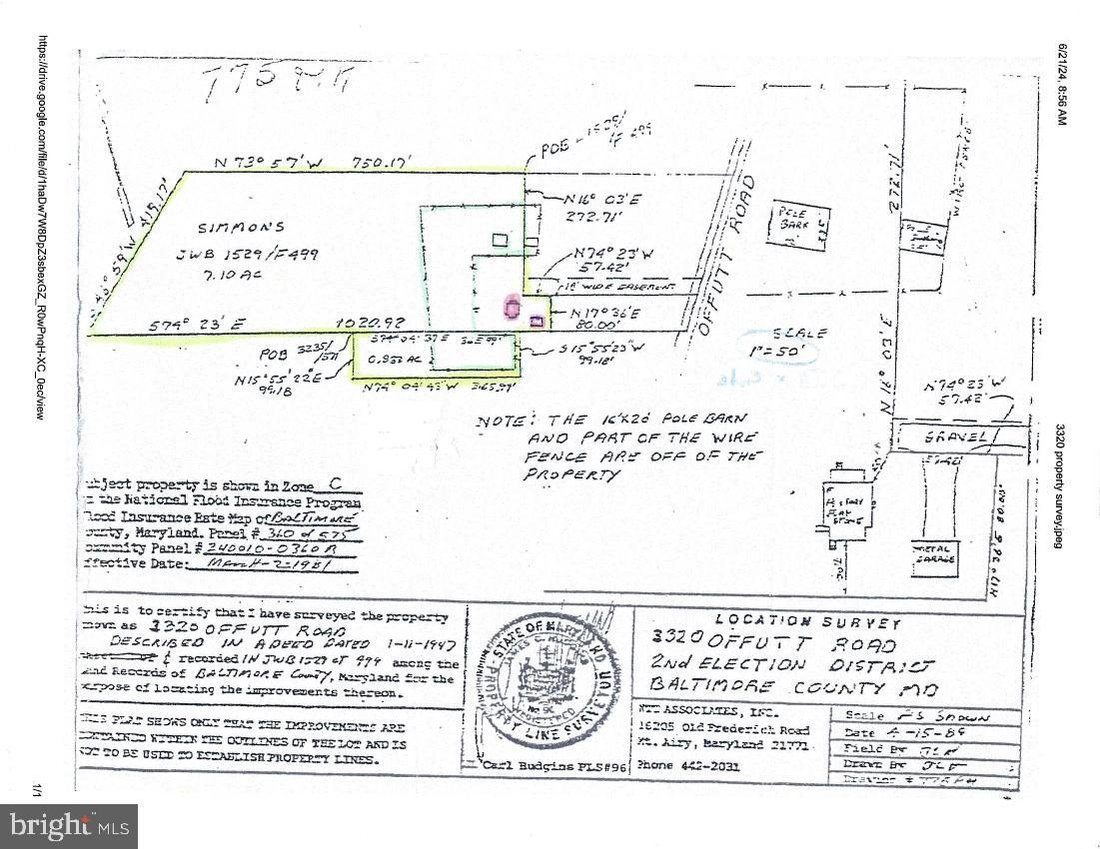 6/21/24, 8:56 AM
3320 property survey.jpeg
N 73° 57' W 750.17'
POB - 1529/
N16° 03' E
272.71'
SIMMONS
JWB 1529/F499
7.10 AC
N74° 23' W
57.42'
12' WIDE EASEMENT
N17° 36' E
80.00'
OFFUTT ROAD
POLE
BARN
WIRE FENCE
574° 23' E 1020.92
POB 3235/
571
0.832 AC
S15°55'23"W
99.18'
N15°55'22"E
99.18
N74° 04' 43" W 365.97'
SCALE
1"=50'
NOTE: THE 16'X20' POLE BARN
AND PART OF THE WIRE
FENCE ARE OFF OF THE
PROPERTY
N74° 23' W
57.42'
GRAVEL
57.42'
METAL
GARAGE
ubject property is shown in Zone C
the National Flood Insurance Program
lood Insurance Rate Map of BALTIMORE
ounty, Maryland. Panel # 360 of 575
ommunity Panel # 240010-0360 B
ffective Date: MARCH-2-1981
his is to certify that I have surveyed the property
nown as 3320 OFFUTT ROAD
DESCRIBED IN A DEED DATED 1-11-1947
& recorded IN JWB 1529 at 499 among the
and Records of BALTIMORE County, Maryland for the
urpose of locating the improvements thereon.
THIS PLAT SHOWS ONLY THAT THE IMPROVEMENTS ARE
CONTAINED WITHIN THE OUTLINES OF THE LOT AND IS
NOT TO BE USED TO ESTABLISH PROPERTY LINES.
STATE OF MARYLAND
PROPERTY LINE SURVEYOR
REGISTERED
Carl Hudgins PLS#96
LOCATION SURVEY
3320 OFFUTT ROAD
2ND ELECTION DISTRICT
BALTIMORE COUNTY MD
NTT ASSOCIATES, INC.
16205 Old Frederick Road
Mt. Airy, Maryland 21771
Phone 442-2031
Scale AS SHOWN
Date 4-15-89
Field By
Drawn By
https://drive.google.com/file/d/1haDw7W8DpZ3sbexGZ_R0wPnqH-XC_0ec/view
1/1
bright MLS